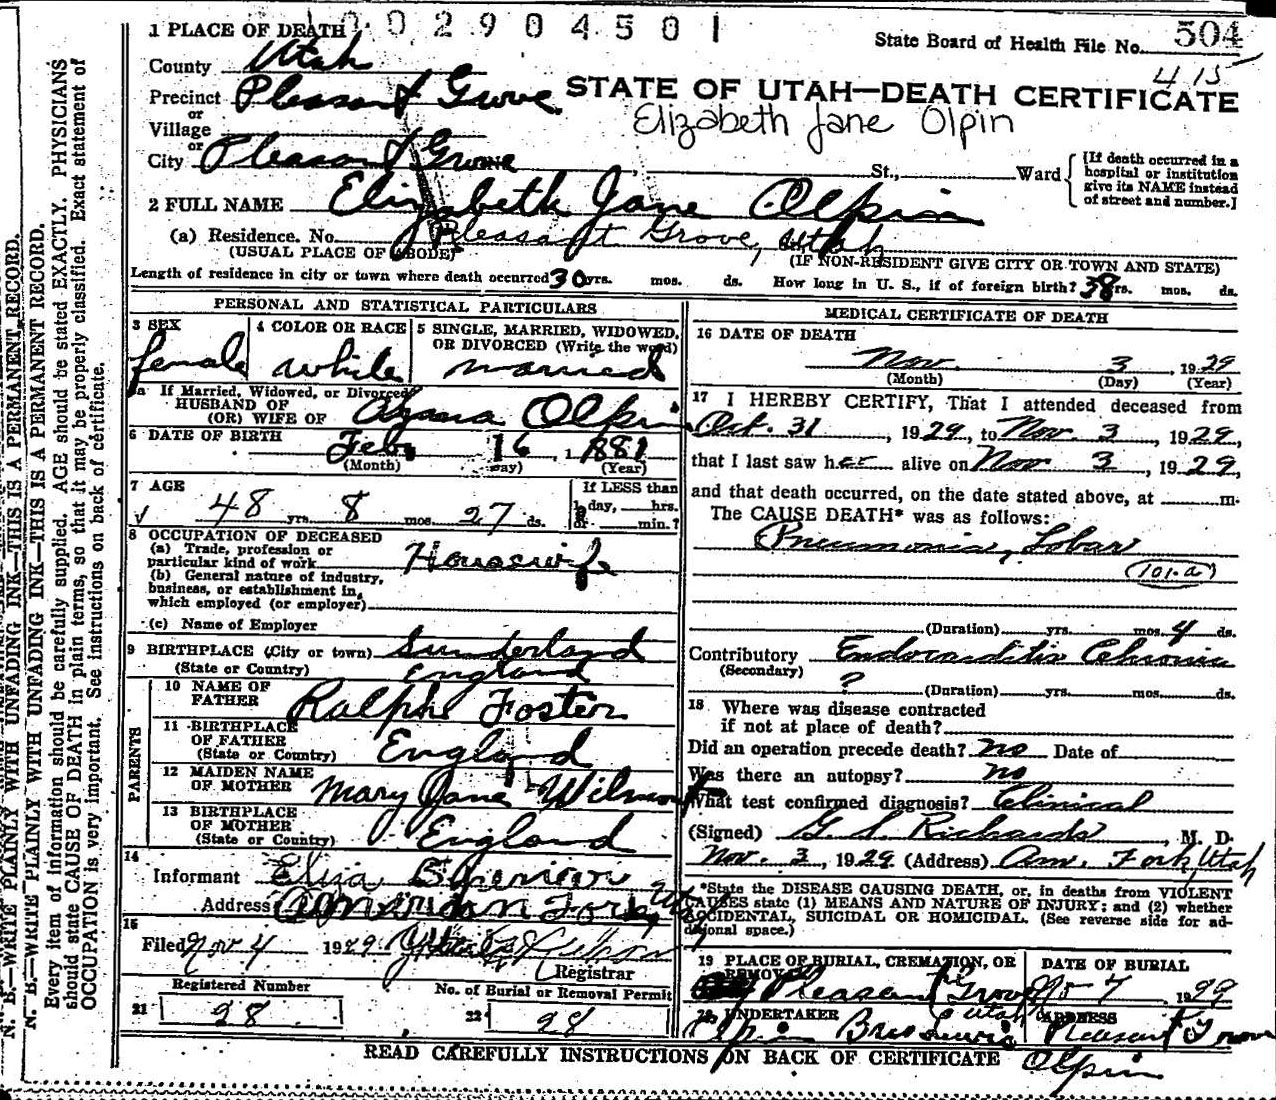 1002904501
1 PLACE OF DEATH
State Board of Health File No. 504
415
County Utah
Precinct Pleasant Grove
or
Village
or
City Pleasant Grove
STATE OF UTAH—DEATH CERTIFICATE
Elizabeth Jane Olpin
St., Ward
[If death occurred in a
hospital or institution
give its NAME instead
of street and number.]
2 FULL NAME Elizabeth Jane Olpin
(a) Residence. No. Pleasant Grove, Utah
(USUAL PLACE OF ABODE)
(IF NON-RESIDENT GIVE CITY OR TOWN AND STATE)
Length of residence in city or town where death occurred 30 yrs. mos. ds. How long in U. S., if of foreign birth? 38 yrs. mos. ds.
PERSONAL AND STATISTICAL PARTICULARS
3 SEX
female
4 COLOR OR RACE
white
5 SINGLE, MARRIED, WIDOWED,
OR DIVORCED (Write the word)
married
5a If Married, Widowed, or Divorced
HUSBAND OF
(OR) WIFE OF Olpin
6 DATE OF BIRTH Feb. 16, 1881
(Month) (Day) (Year)
7 AGE
48 yrs. 8 mos. 27 ds.
If LESS than
1 day, hrs.
or min.?
8 OCCUPATION OF DECEASED
(a) Trade, profession or
particular kind of work Housewife
(b) General nature of industry,
business, or establishment in
which employed (or employer)
(c) Name of Employer
9 BIRTHPLACE (City or town) Sunderland
(State or Country) England
PARENTS
10 NAME OF
FATHER Ralph Foster
11 BIRTHPLACE
OF FATHER
(State or Country) England
12 MAIDEN NAME
OF MOTHER Mary Jane Wilmot
13 BIRTHPLACE
OF MOTHER
(State or Country) England
14
Informant Eliza
Address American Fork,
15
Filed Nov 4 1929
Registrar
Registered Number
21 28
No. of Burial or Removal Permit
22 28
MEDICAL CERTIFICATE OF DEATH
16 DATE OF DEATH
Nov. 3, 1929
(Month) (Day) (Year)
17 I HEREBY CERTIFY, That I attended deceased from
Oct. 31, 1929, to Nov. 3, 1929,
that I last saw her alive on Nov 3, 1929,
and that death occurred, on the date stated above, at m.
The CAUSE DEATH* was as follows:
Pneumonia, Lobar
(101-a)
(Duration) yrs. mos. 4 ds.
Contributory Endocarditis Chronic
(Secondary)
? (Duration) yrs. mos. ds.
18 Where was disease contracted
if not at place of death?
Did an operation precede death? no Date of
Was there an autopsy? no
What test confirmed diagnosis? Clinical
(Signed) G. S. Richards, M. D.
Nov. 3, 1929 (Address) Am. Fork, Utah
*State the DISEASE CAUSING DEATH, or, in deaths from VIOLENT
CAUSES state (1) MEANS AND NATURE OF INJURY; and (2) whether
ACCIDENTAL, SUICIDAL OR HOMICIDAL. (See reverse side for ad-
ditional space.)
19 PLACE OF BURIAL, CREMATION, OR
REMOVAL
Pleasant Grove
Utah
DATE OF BURIAL
Nov 7, 1929
20 UNDERTAKER
Olpin Bros
ADDRESS
Pleasant Grove
Olpin
READ CAREFULLY INSTRUCTIONS ON BACK OF CERTIFICATE
N. B.—WRITE PLAINLY WITH UNFADING INK—THIS IS A PERMANENT RECORD.
N. B.—WRITE PLAINLY WITH UNFADING INK—THIS IS A PERMANENT RECORD.
Every item of information should be carefully supplied. AGE should be stated EXACTLY. PHYSICIANS
should state CAUSE OF DEATH in plain terms, so that it may be properly classified. Exact statement of
OCCUPATION is very important. See instructions on back of certificate.